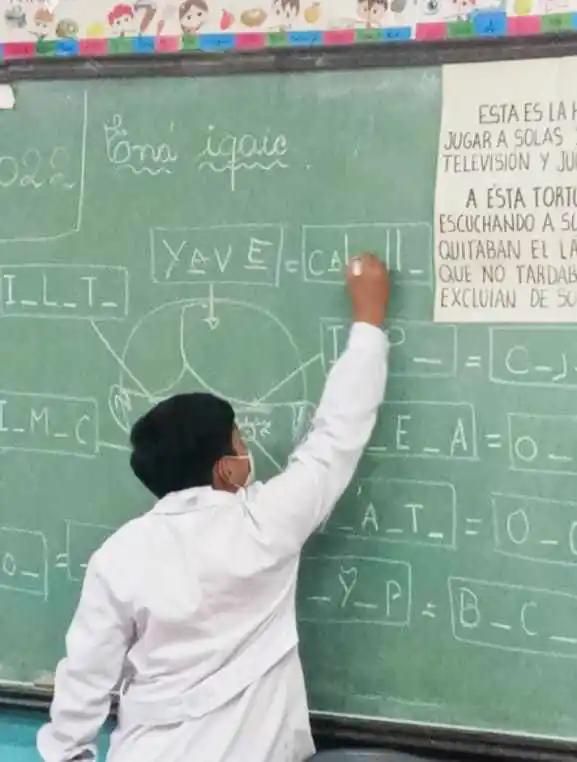 022
Ená iqaic
YAVE = CAB_ll_
I_L_T_
I_P_ = C_J
I_M_C
_E_A = O_
_Á_T_ = O_C
O_ =
_Ỹ_P = B_C_
ESTA ES LA H
JUGAR A SOLAS
TELEVISIÓN Y JU
A ÉSTA TORTU
ESCUCHANDO A SU
QUITABAN EL LA
QUE NO TARDAB
EXCLUIAN DE SU